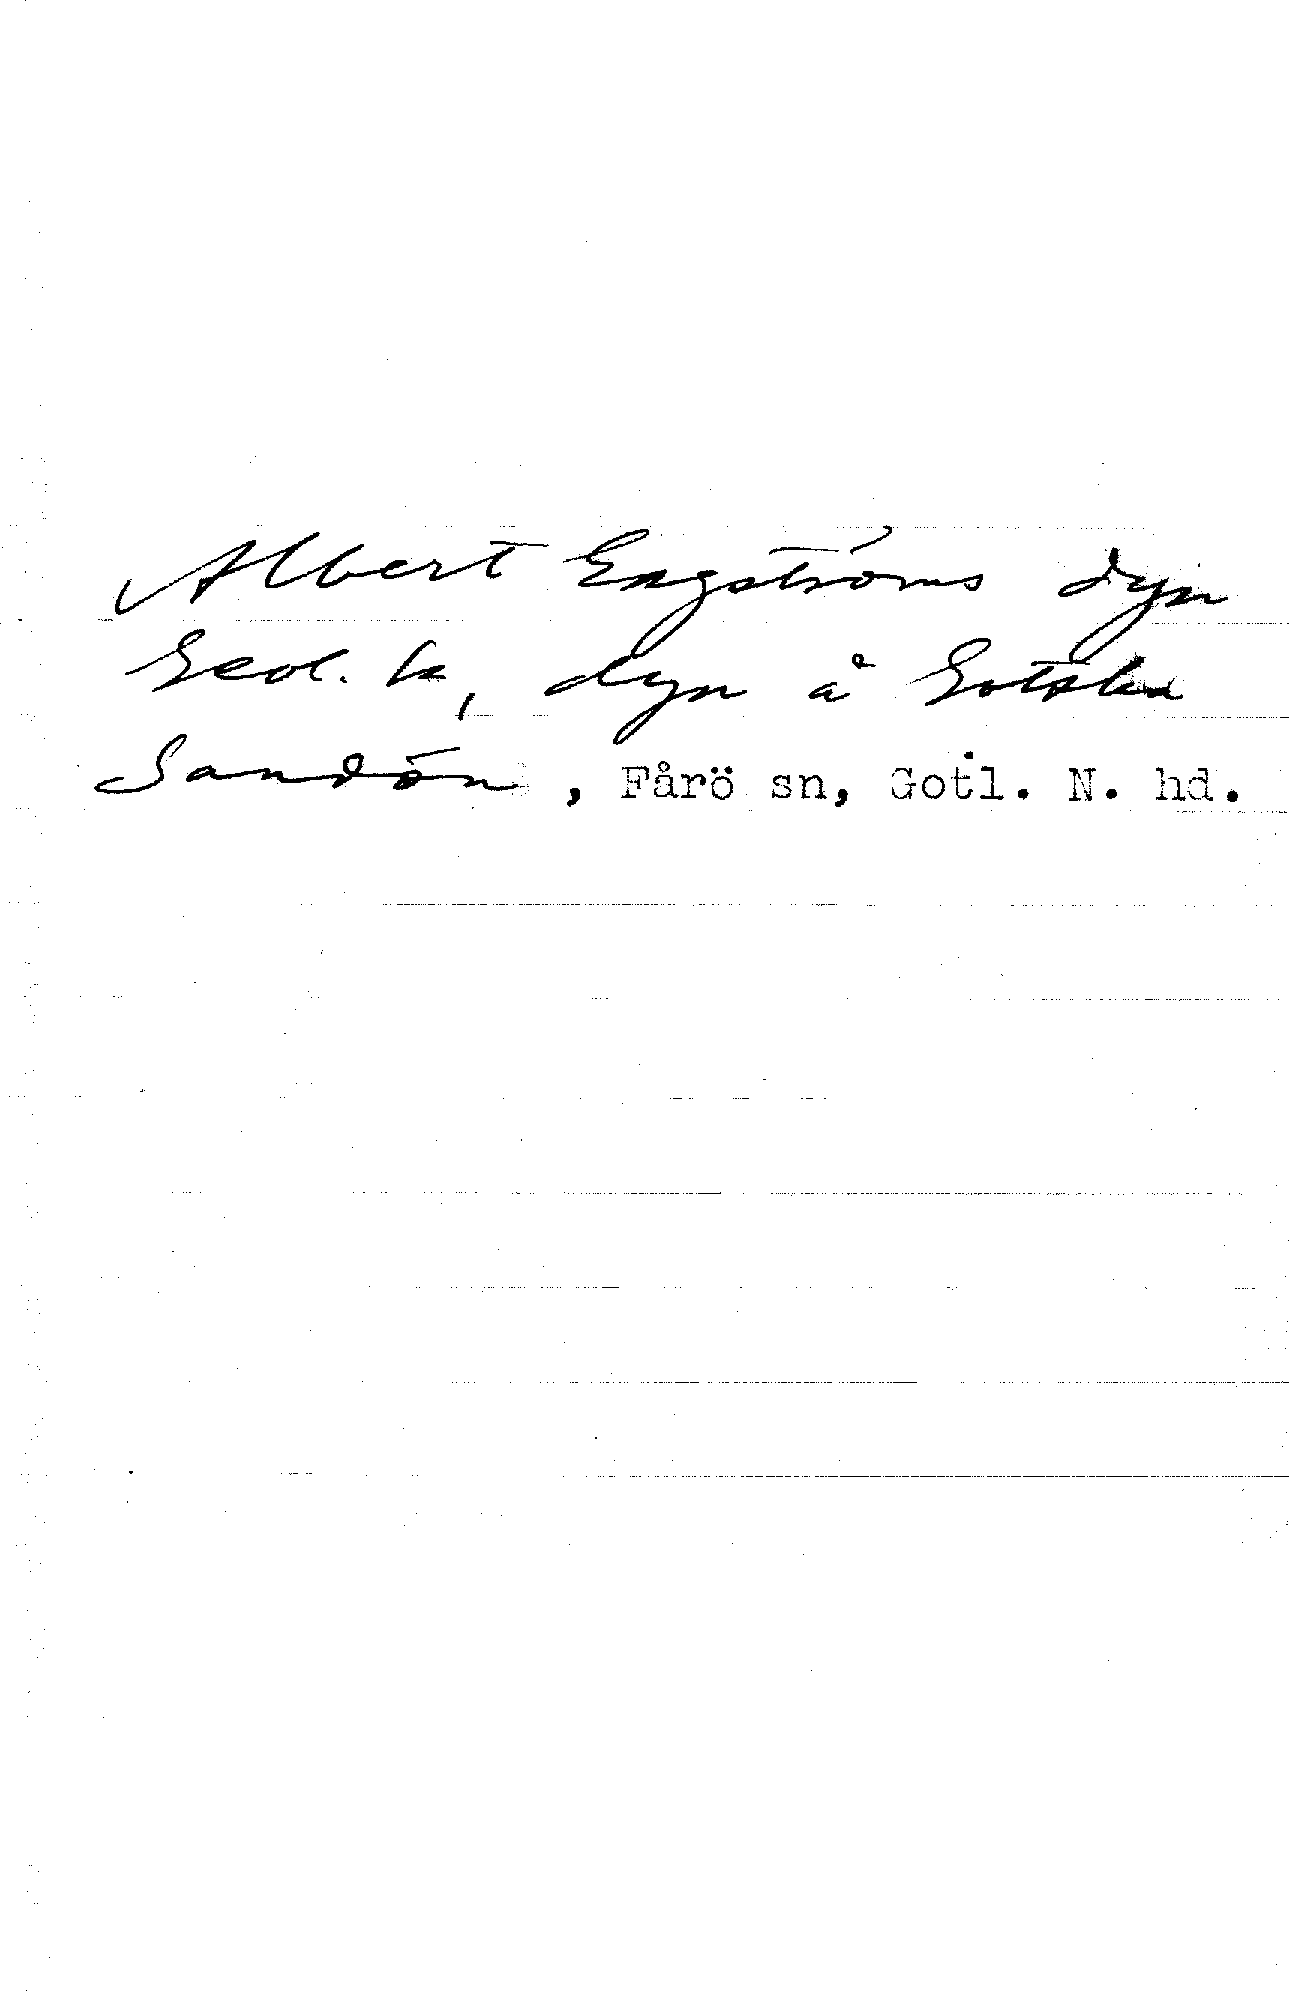 Albert Engströms dyn
Geol. k, dyn å Gotska
Sandön, Fårö sn, Gotl. N. hd.